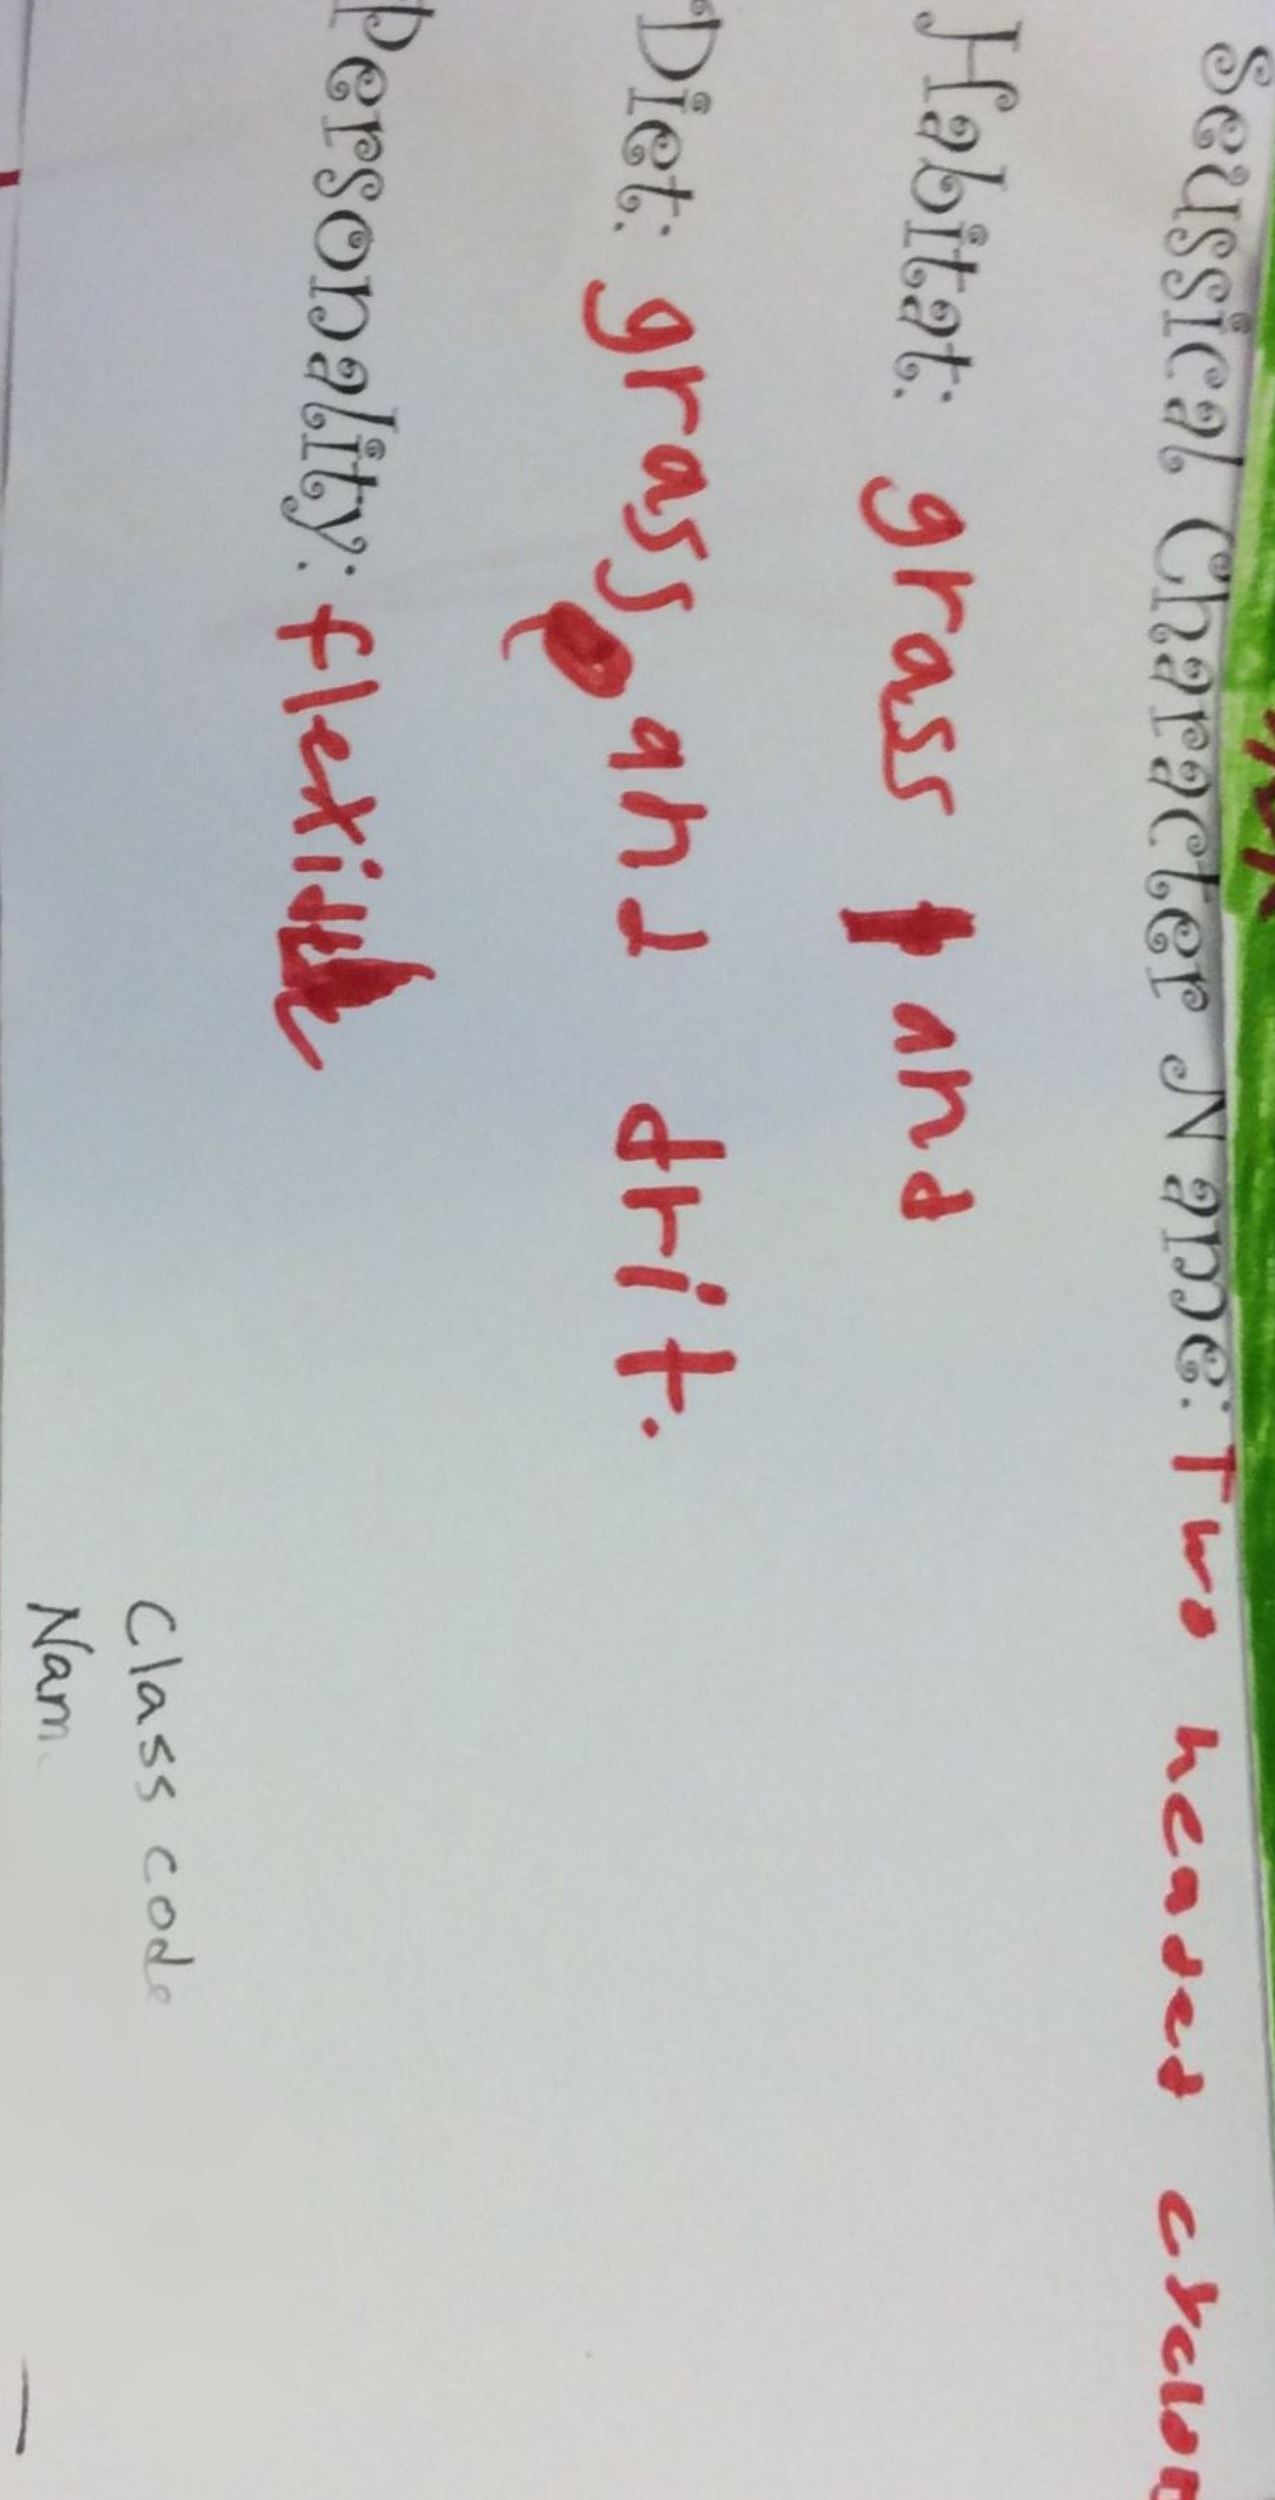 Seussical Character Name: Two headed cyclop
Habitat: grass land
Diet: grass and drit.
Personality: flexible
Class code
Nam